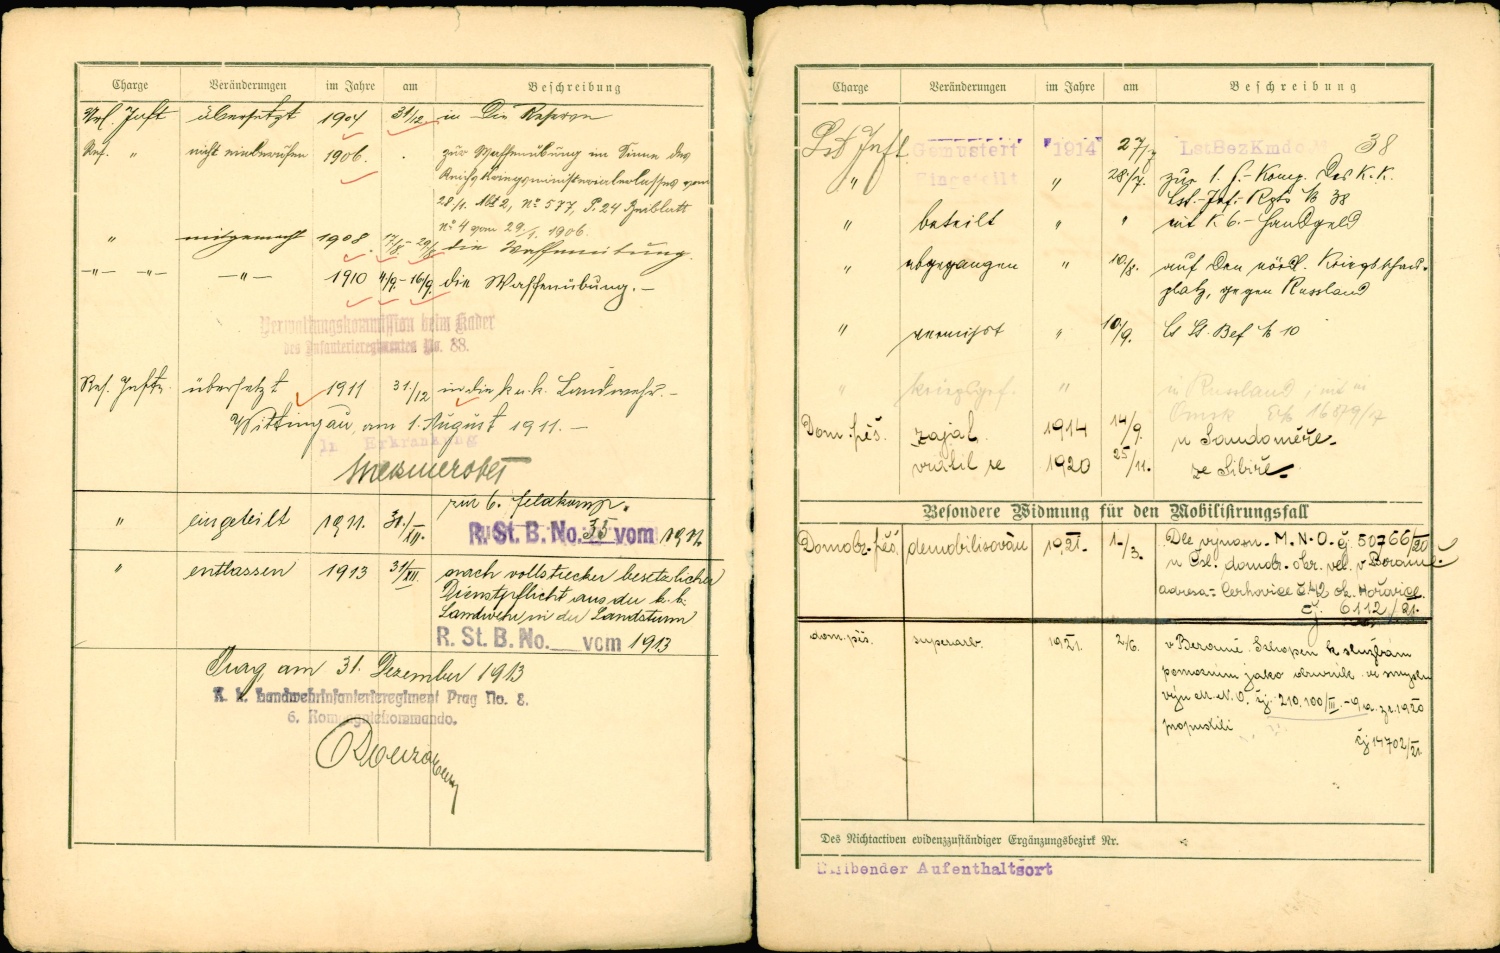 Charge Veränderungen im Jahre am Beschreibung
Inft übersetzt 1904 31/12 in Die Reserve
Res. " nicht einberufen 1906. zur Waffenübung im Sinne des
Reichskriegsministerialerlasses vom
28/1. Abt 2, No 577, P. 24 Beiblatt
No 4 vom 29/1. 1906.
" mitgemacht 1908 17/8.-29/8 die Waffenübung.
-"- -"- -"- 1910 4/9.-16/9. die Waffenübung.-
Verwaltungskommission beim Kader
des Infanterieregimentes No. 88.
Res. Inftr. übersetzt 1911 31./12 in die k. u. k. Landwehr.-
Wittingau, am 1. August 1911.-
In Erkrankung
" eingeteilt 1911. 31./XII. zur 6. Feldkomp.
R. St. B. No. 35 vom 1912
" entlassen 1913 31/XII. nach vollstreckter gesetzlicher
Dienstpflicht aus der k. k.
Landwehr in der Landsturm
R. St. B. No. vom 1913
Prag am 31. Dezember 1913
K. k. Landwehrinfanterieregiment Prag No. 8.
6. Kompagniekommando.
Charge Veränderungen im Jahre am Beschreibung
Lst Inft. Gemustert 1914 27/7 LstBezKmdo. 38
" Eingeteilt " 28/7. zur 1. F.-Komp. Des K. K.
Lst.-Inf.-Rgts No 38
" beteilt " " mit K 6.- Handgeld
" abgegangen " 10/8. auf den nördl. Kriegsschau-
platz, gegen Russland
" vermisst " 10/9. Bef No 10
" kriegsgef. " in Russland,
Omsk 16879/17
Dom. pěš. zajal 1914 14/9. u Sandoměře.
vrátil se 1920 25/11. ze Sibiře.
Besondere Widmung für den Mobilisirungsfall
Domobr. pěš. demobilisován 1921. 1./3. Dle vynesen. M. N. O. čj. 50766/20
u Čsl. domobr. okr. vel. v Berouně.
adresa: Cerhovice č. 42 ok. Hořovice.
čj 6112/21.
dom. pěš. superarb. 1921. 2/6. v Berouně. Schopen k službám
pomocným jako
výn M. N. O. čj. 210,100/III.- 1920
propuštěn
čj 14702/21
Des Nichtactiven evidenzzuständiger Ergänzungsbezirk Nr.
Bleibender Aufenthaltsort